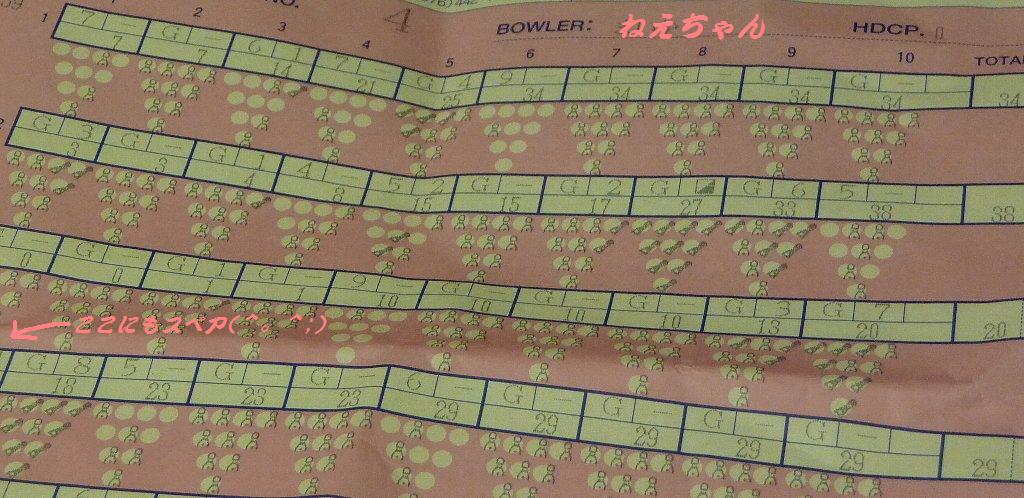 NO. 4
BOWLER: ねえちゃん HDCP. 0
1 2 3 4 5 6 7 8 9 10 TOTA
7 – G – 6 1 7 – G 4 9 – G – G – G – G –
7 7 14 21 25 34 34 34 34 34 34
G 3 G – G 1 4 – 5 2 G – G 2 G ◢ G 6 5 –
3 3 4 8 15 15 17 27 33 38 38
– G – G 1 G – 9 – G – G – G – G 3 G 7 –
0 0 1 1 10 10 10 10 13 20 20
←ここにもスペア(^。^;)
G 8 5 – G – G – 6 – G – G – G – G –
18 23 23 23 29 29 29 29 29 29